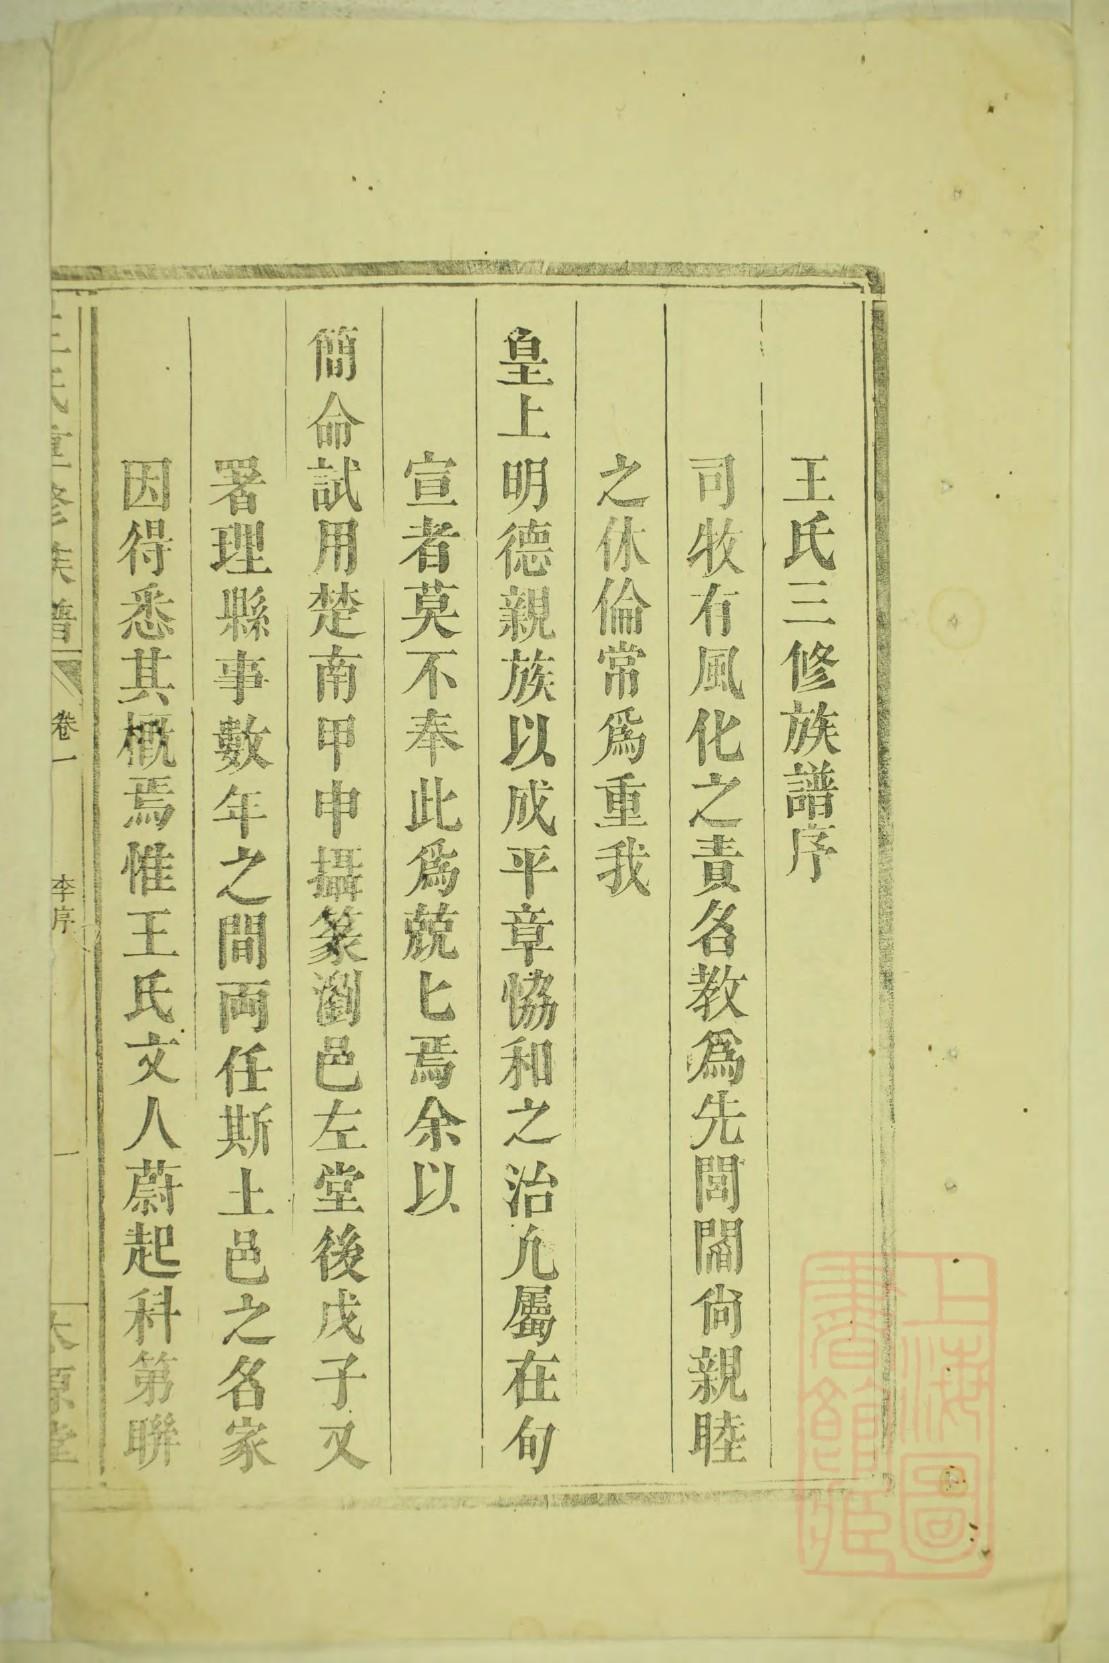 王氏三修族譜序
司牧有風化之責名教為先閭閻尙親睦
之休倫常為重我
皇上明德親族以成平章恊和之治允屬在旬
宣者莫不奉此為兢匕焉余以
簡命試用楚南甲申攝篆瀏邑左堂後戊子又
署理縣事數年之間両任斯土邑之名家
因得悉其概焉惟王氏文人蔚起科第聯
王氏重修族譜
卷一
李序
一
太原堂
上海圖
書館藏